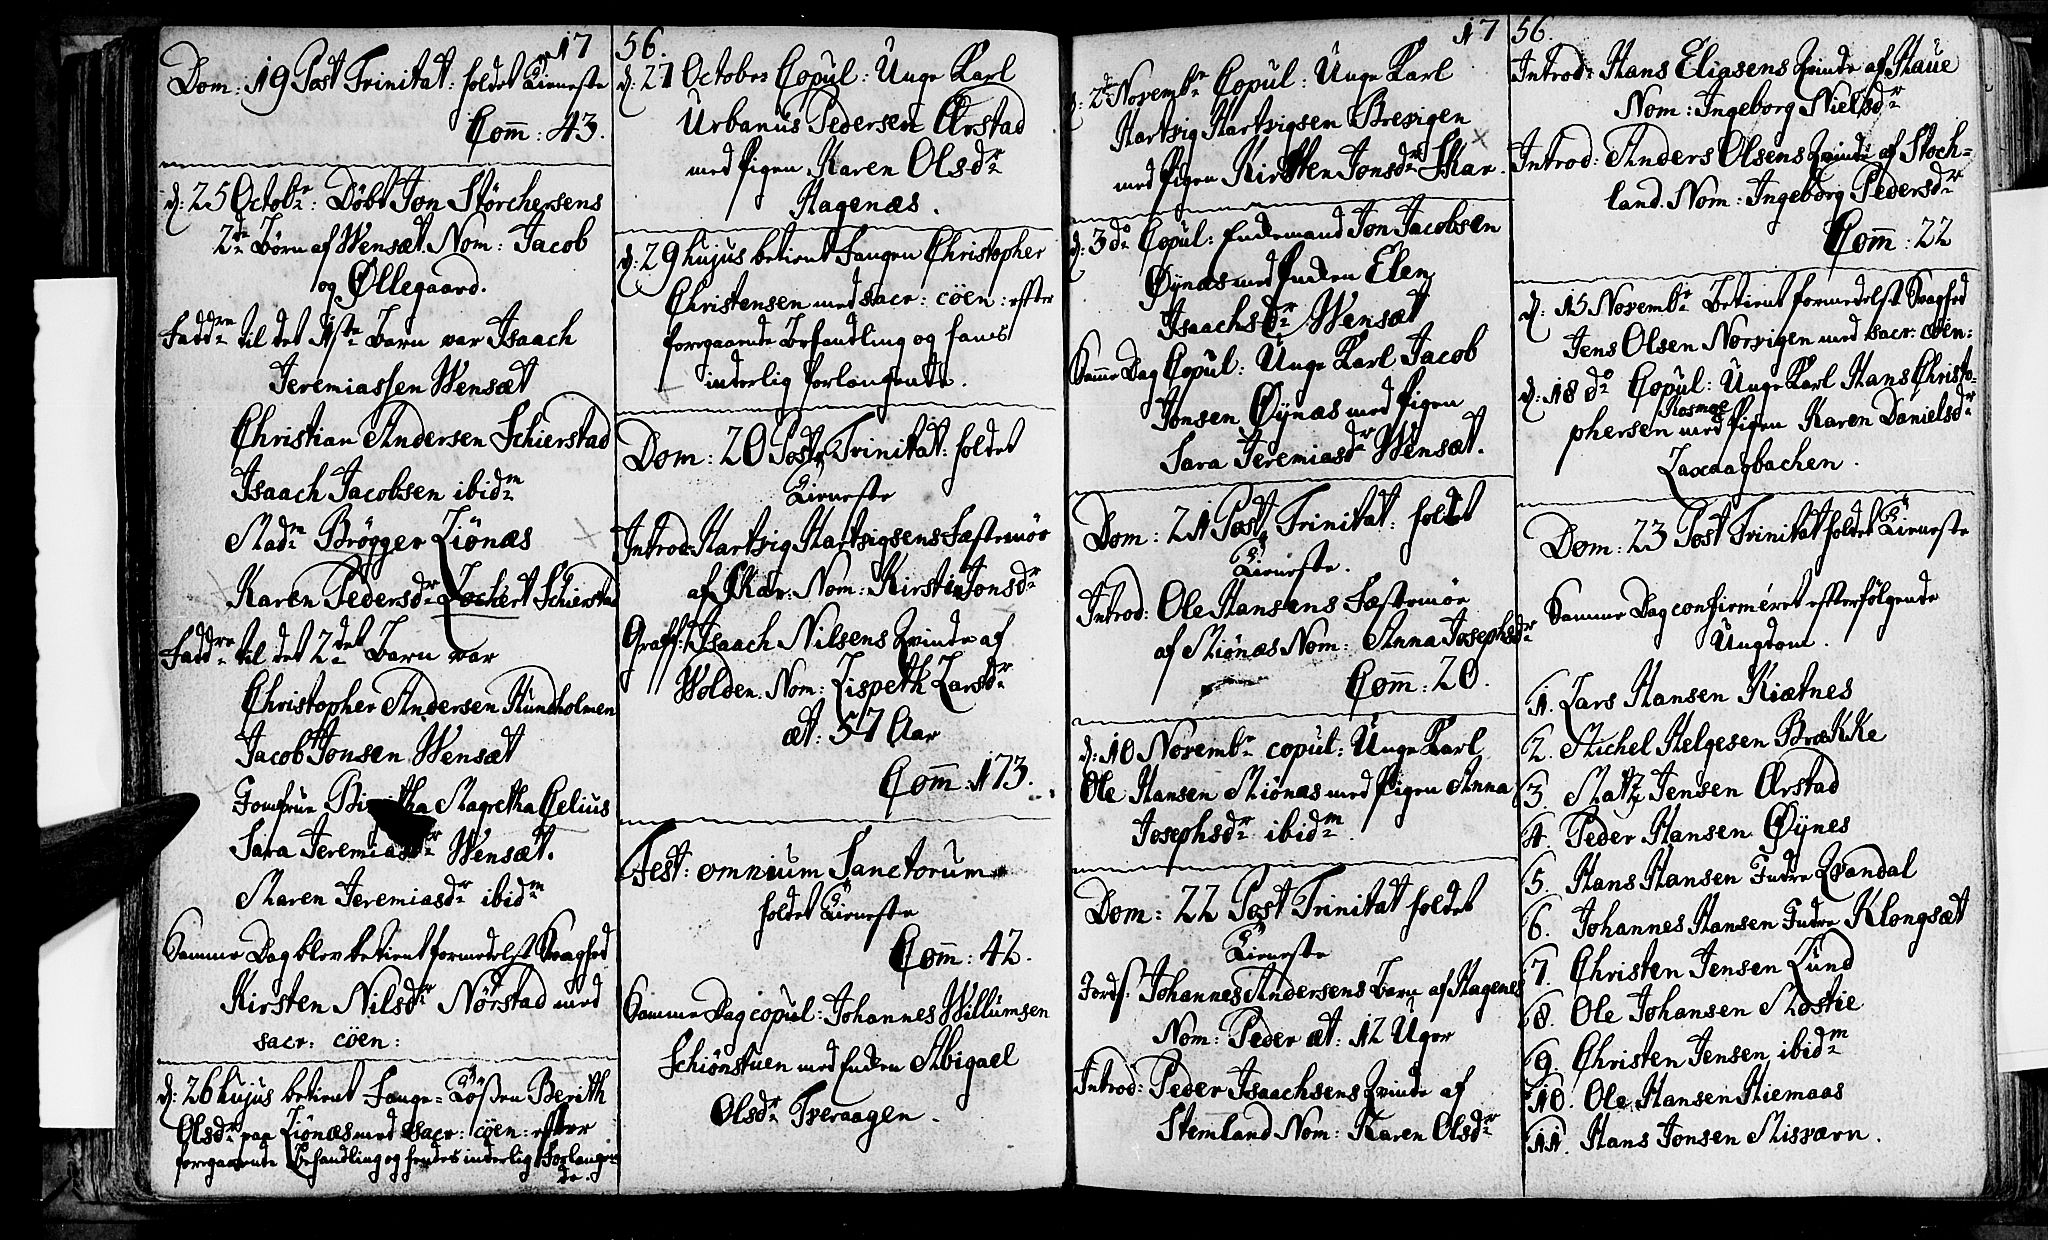 17
Dom: 19 Post Trinitat: holdet Tieneste
Com̄: 43.
d: 25 Octobr: Døbt Jon Störchersens
2de Børn af Wensæt. Nom: Jacob
og Øllegaard.
Faddre til det 1ste Barn var Isaach
Jeremiassen Wensæt
Christian Andersen Schierstad
Isaach Jacobsen ibidm
Madm Brøgger Ziönæs
Karen Pedersdr Schierstad
Faddre til det 2det Barn var
Christopher Andersen Hundholmen
Jacob Jonsen Wensæt
Jomfrue Magretha Celius
Sara Jeremiasdr Wensæt.
Maren Jeremiasdr ibidm
Samme Dag blev betient formedelst Svaghed
Kirsten Nilsdr Nörstad med
sacr: cöen:
d: 26 hujus betient Fange Berith
Olsdr paa Ziönæs med sacr: cöen: efter
foregaaende Behandling og hendes inderlig Forlangen-
de.
56.
d: 27 October Copul: Unge Karl
Urbanus Pedersen Ørstad
med Pigen Karen Olsdr
Hagenæs.
d: 29 hujus betient Fangen Christopher
Christensen med sacr: cöen: efter
foregaaende Behandling og hans
inderlig forlangende.
Dom: 20 Post Trinitat: holdet
Tieneste
Introd: Hartvig Hartvigsens Festemöe
af Skar: Nom: Kirsten Jonsdr
Graff: Isaach Nilsens Qvinde af
Wolden. Nom: Lispeth Larsdr
æt: 57 Aar
Com̄: 173.
Fest: omnium Sanctorum
holdet Tieneste
Com̄: 42.
Samme Dag copul: Johannes Willumsen
Schiönstuen med Enken Abigael
Olsdr Tveraagen.
17
d: 2 Novembr Copul: Unge Karl
Hartvig Hartvigsen Brevigen
med Pigen Kirsten Jonsdr Skar.
d: 3 do Copul: Enkemand Jon Jacobsen
Øynæs med Enken Elen
Isaachsdr Wensæt
Samme Dag Copul: Unge Karl Jacob
Jonsen Øynæs med Pigen
Sara Jeremiasdr Wensæt.
Dom: 21 Post Trinitat: holdet
Tieneste.
Introd: Ole Hansens Festemöe
af Miönæs Nom: Anna Josephsdr
Com̄: 20.
d: 10 Novembr copul: Unge Karl
Ole Hansen Miönæs med Pigen Anna
Josephsdr ibidm.
Dom: 22 Post Trinitat holdet
Tieneste
Jordf: Johannes Andersens Barn af Hagenes
Nom: Peder æt: 12 Uger
Introd: Peder Isaachsens Qvinde af
Stemland Nom: Karen Olsdr
56.
Introd: Hans Eliasens Qvinde af Staue
Nom: Ingeborg Nielsdr
Introd: Anders Olsens Qvinde af Stoch-
land. Nom: Ingeborg Pedersdr
Com̄: 22
d: 15 Novembr Betient formedelst Svaghed
Jens Olsen Norvigen med sacr: cöen:
d: 18 do Copul: Unge Karl Hans Christo-
Kosmoe
phersen med Pigen Karen Danielsdr
Laxaagbachen.
Dom: 23 Post Trinitat holdet Tieneste
Samme Dag confirméret efterfölgende
Ungdom.
1. Lars Hansen Kiætnes
2. Michel Helgesen Brække
3. Matz Jensen Ørstad
4. Peder Hansen Øynes
5. Hans Hansen Indre Qvandal
6. Johannes Hansen Indre Klongsæt
7. Christen Jensen Lund
8. Ole Johansen Mostie
9. Christen Jensen ibidm
10. Ole Hansen Hiemaas
11. Hans Jonsen Misværn.